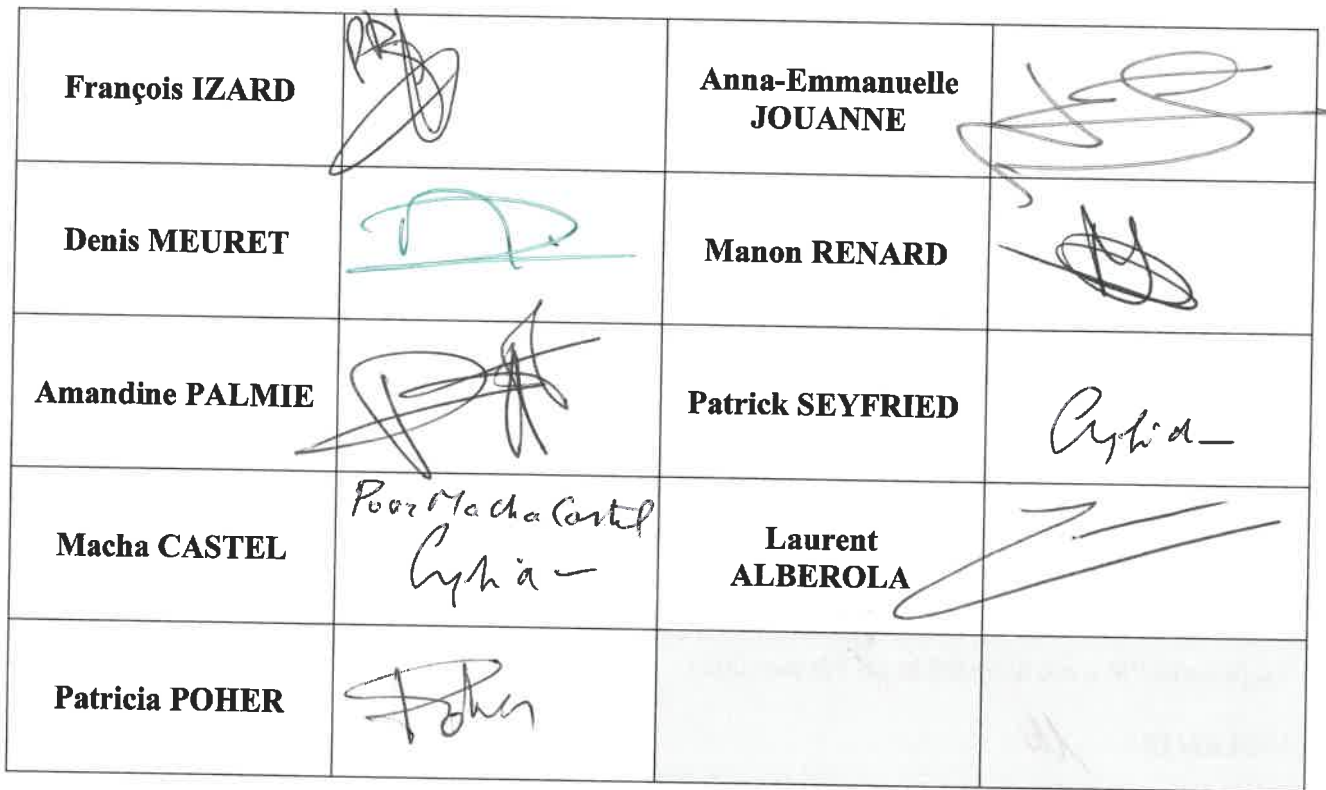 François IZARD
Anna-Emmanuelle
JOUANNE
Denis MEURET
Manon RENARD
Amandine PALMIE
Patrick SEYFRIED
Macha CASTEL
Pour Macha Castel
Laurent
ALBEROLA
Patricia POHER
Poher